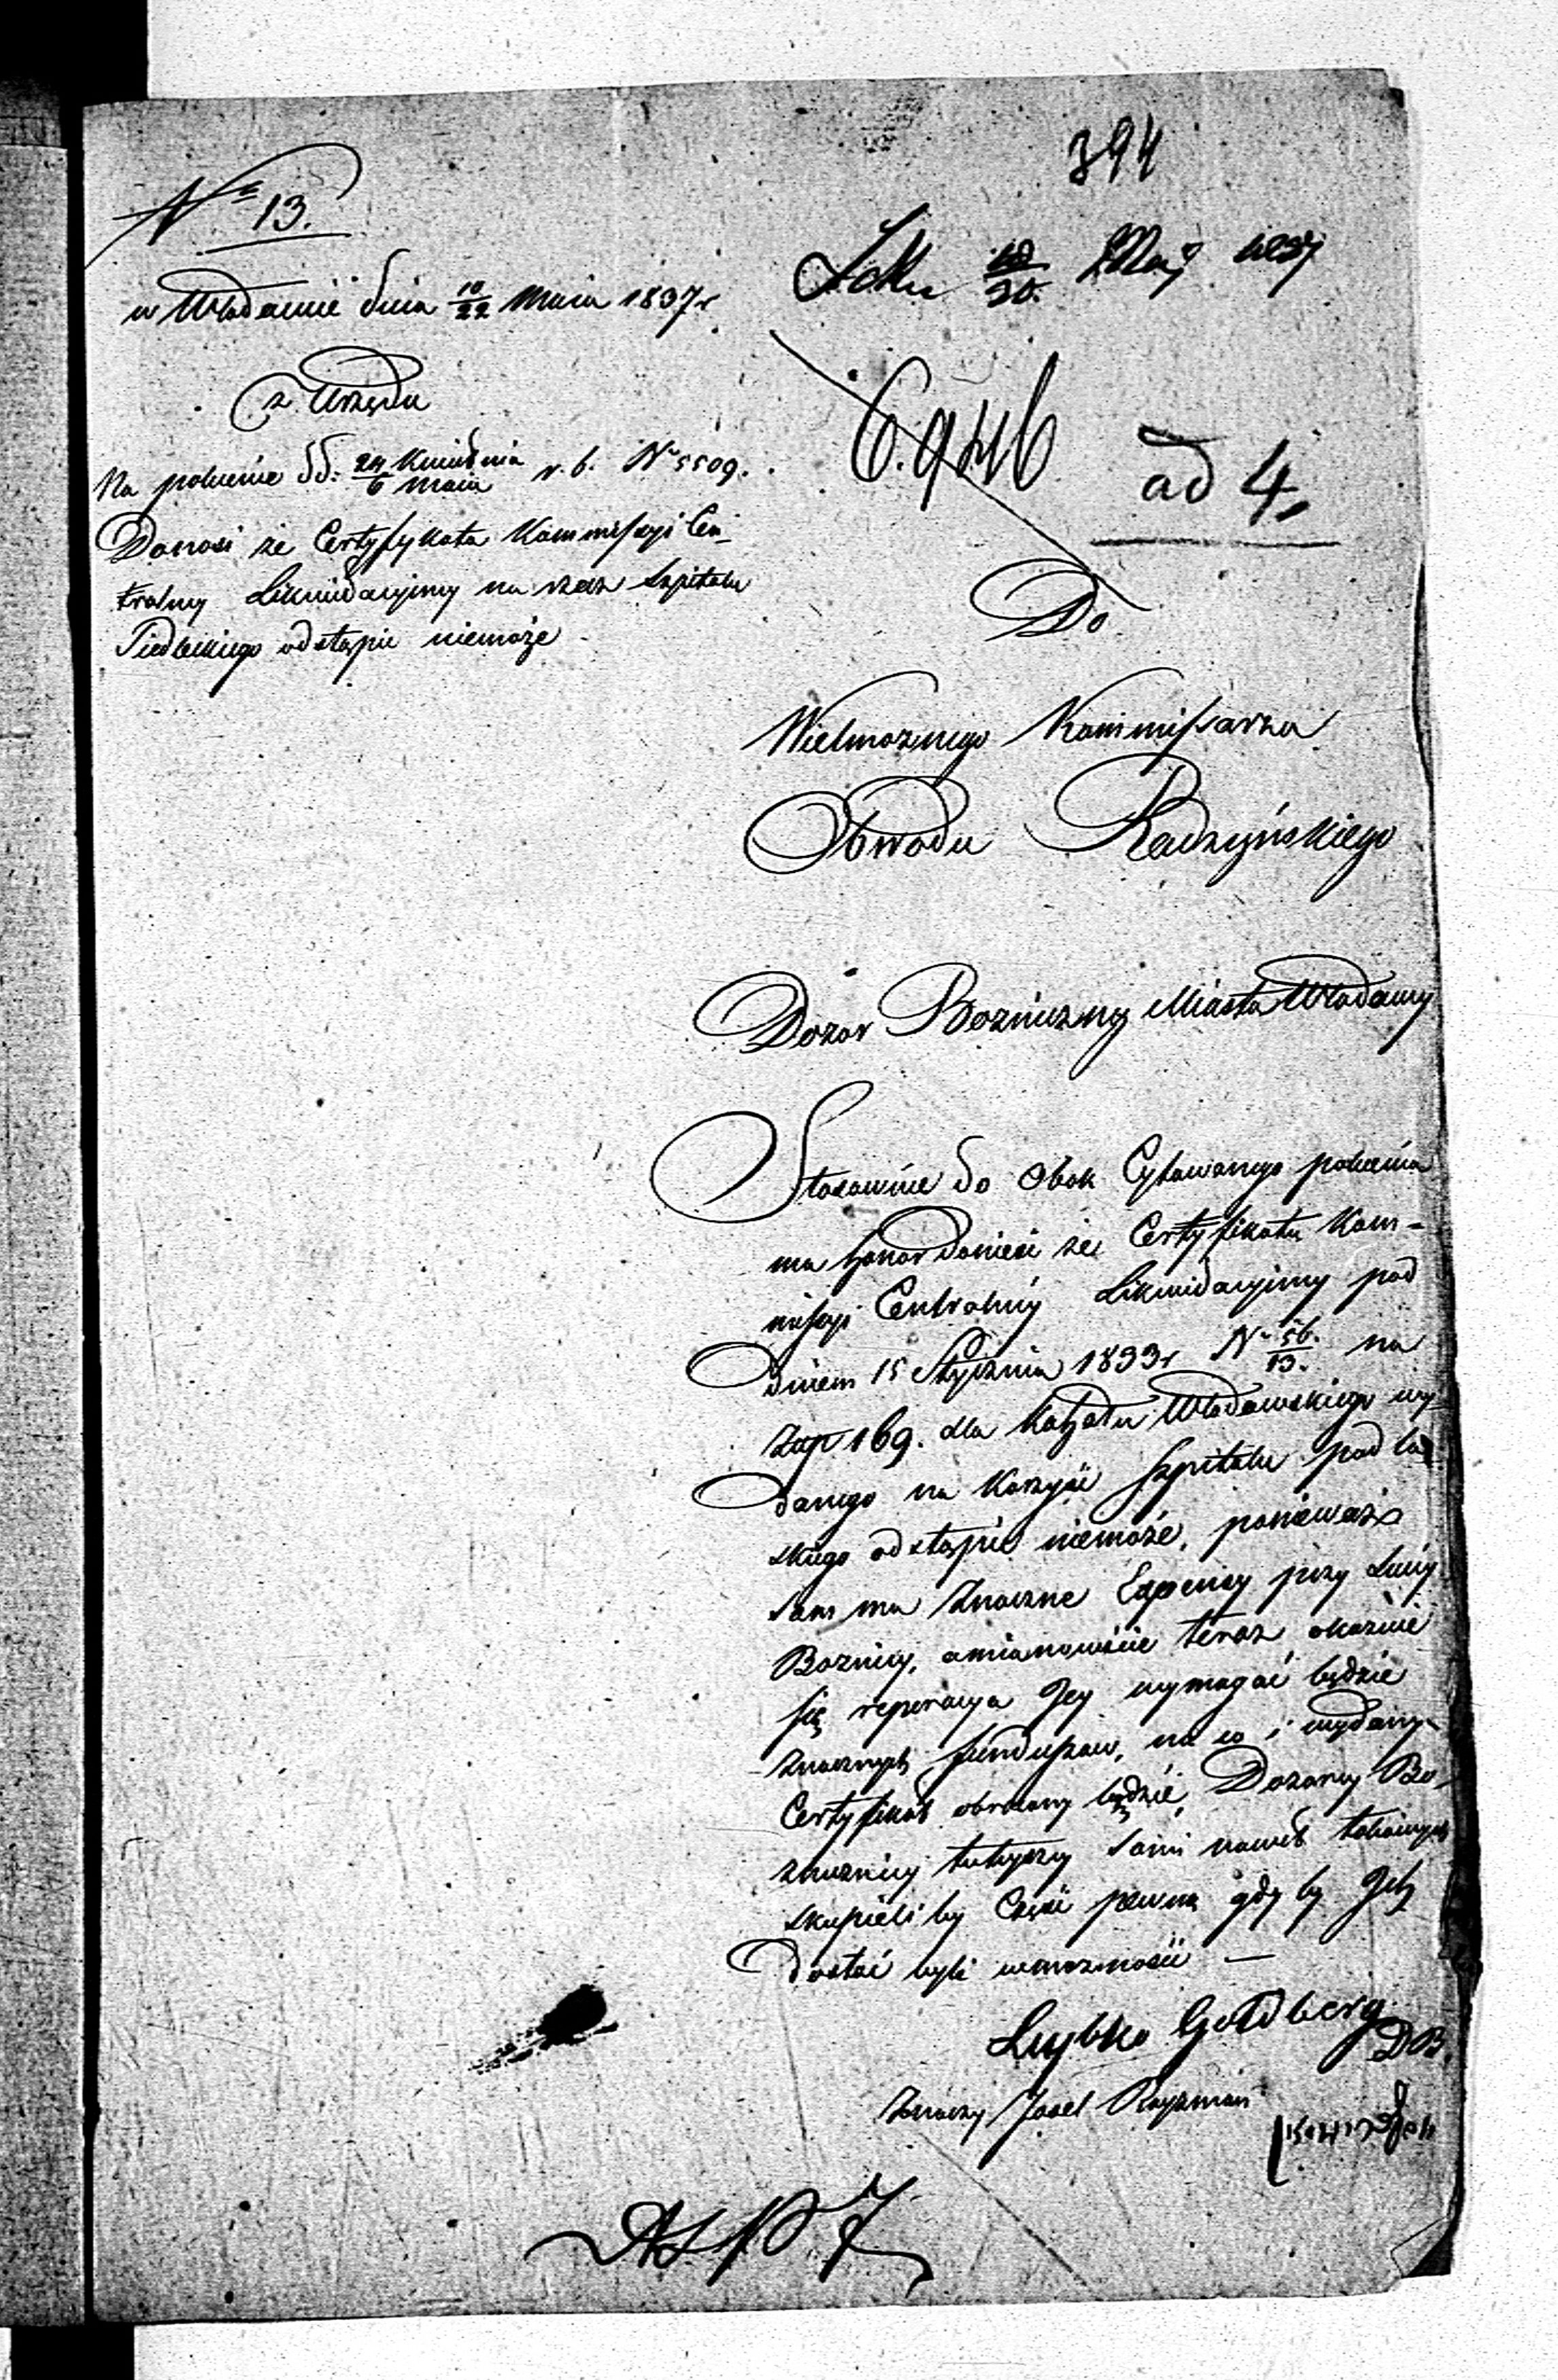 394
N 13.
w Włodawie dnia 10/22 Maia 1837 r
z Urzędu
Na polecenie dd: 24 Kwietnia / 6 Maia r. b. N 5509.
Donosi że Certyfykata Kommissyi Cen-
tralney Likwidacyiney na rzecz Szpitala
Siedleckiego odstąpić niemoże
18/30 Maj
6.946
ad 4,
Do
Wielmożnego Kommissarza
Obwodu Radzyńskiego
Dozor Bozniczny Miasta Włodawy
Stosownie do Obok Cytowanego polecenia
ma honor donieść że Certyfikatu Kom-
missyi Centralney Likwidacyiney pod
dniem 15 Stycznia 1833 r N 56/13. na
Złp 169. dla Kahału Włodawskiego wy
danego na Korzyść Szpitala
odstąpić niemoże, ponieważ
sam ma znaczne Expensy przy
Boznicy, amianowicie teraz okaznie
się reperacya Jey wymagać będzie
znacznych funduszow, na co i wydany
Certyfikat obrócony będzie, Dozorcy Bo-
zniczni tuteyszy sami nawet takowych
skupieli by Część pewną gdy by Jch
dostać byli wmożności —
Leybko Goldberg DB.
Znaczy Josel Rayzman